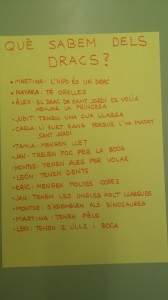 QUÈ SABEM DELS
DRACS?
• MARTINA: L'HIPO ÉS UN DRAC
• NAYARA: TÉ ORELLES
• ÀLEX: EL DRAC DE SANT JORDI ES VOLIA
MENJAR LA PRINCESA
• JUDIT: TENEN UNA CUA LLARGA
• CARLA: LI SURT SANG PERQUÈ L'HA MATAT
SANT JORDI
• TANIA: MENGEN LLET
• JAN: TREUEN FOC PER LA BOCA
• MONTSE: TENEN ALES PER VOLAR
• LEÓN: TENEN DENTS
• ERIC: MENGEN MOLTES COSES
• JAN: TENEN LES UNGLES MOLT LLARGUES
• MONTSE: S'ASSEMBLEN ALS DINOSAURES
• MARTINA: TENEN PÈLS
• LEO: TENEN 2 ULLS I BOCA